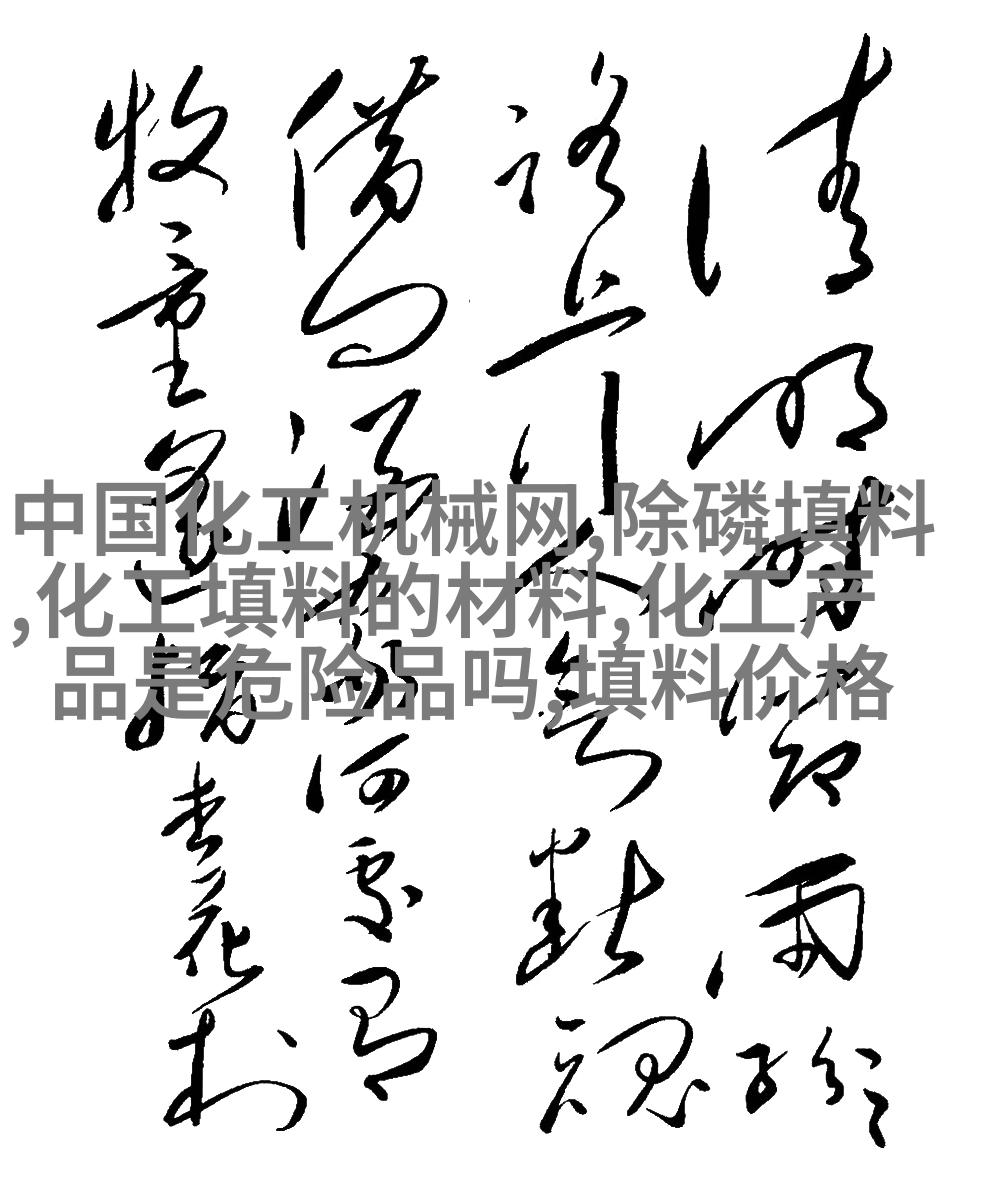 清明時節雨紛々
路上行人欲斷魂
借問酒家何處有
牧童遙指杏花村
中国化工机械网,除磷填料
,化工填料的材料,化工产
品是危险品吗,填料价格